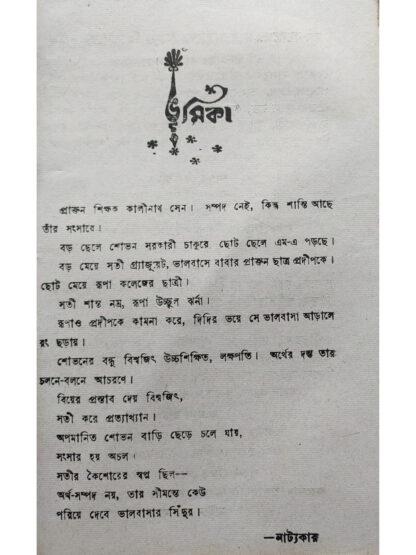 ভূমিকা
প্রাক্তন শিক্ষক কালীনাথ সেন। সম্পদ নেই, কিন্তু শান্তি আছে
তাঁর সংসারে।
বড় ছেলে শোভন সরকারী চাকুরে ছোট ছেলে এম-এ পড়ছে।
বড় মেয়ে সতী গ্র্যাজুয়েট, ভালবাসে বাবার প্রাক্তন ছাত্র প্রদীপকে।
ছোট মেয়ে রূপা কলেজের ছাত্রী।
সতী শান্ত নম্র, রূপা উচ্ছল ঝর্না।
রূপাও প্রদীপকে কামনা করে, দিদির ভয়ে সে ভালবাসা আড়ালে
রং ছড়ায়।
শোভনের বন্ধু বিশ্বজিৎ উচ্চশিক্ষিত, লক্ষপতি। অর্থের দম্ভ তার
চলনে-বলনে আচরণে।
বিয়ের প্রস্তাব দেয় বিশ্বজিৎ,
সতী করে প্রত্যাখ্যান।
অপমানিত শোভন বাড়ি ছেড়ে চলে যায়,
সংসার হয় অচল।
সতীর কৈশোরের স্বপ্ন ছিল—
অর্থ-সম্পদ নয়, তার সীমন্তে কেউ
পরিয়ে দেবে ভালবাসার সিঁদুর।
—নাট্যকার